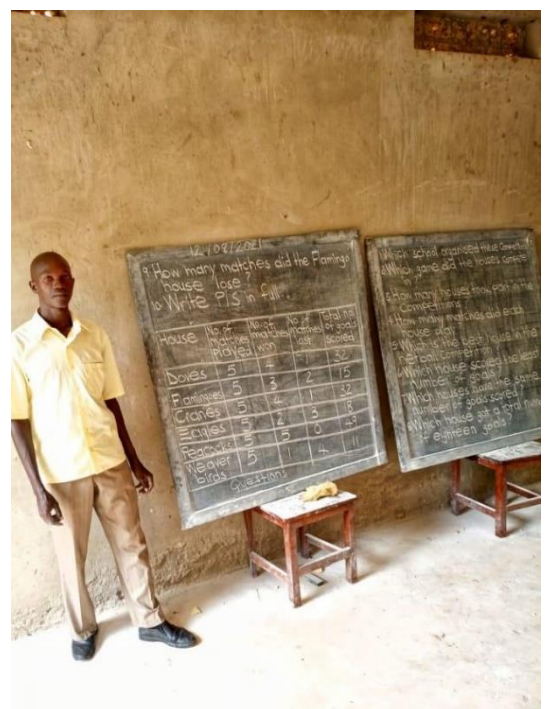 12/08/2021
9. How many matches did the Flamingo
house lose?
10 Write P.I.S in full
House No. of matches played No. of matches won No. of matches lost Total no of goals scored
Doves 5 4 1 32
Flamingoes 5 3 2 15
Cranes 5 4 1 32
Eagles 5 2 3 18
Peacock 5 5 0 49
Weaver birds 5 1 4 11
Questions
Which school organised these Competitions
Which game did the houses compete
in?
3. How many houses took part in the
Competitions
4 How many matches did each
house play
5 Which is the best house in the
netball competition
6 Which house scored the least
number of goals?
7 Which houses scored the same
number of goals scored
8 Which house got a total num
of eighteen goals?